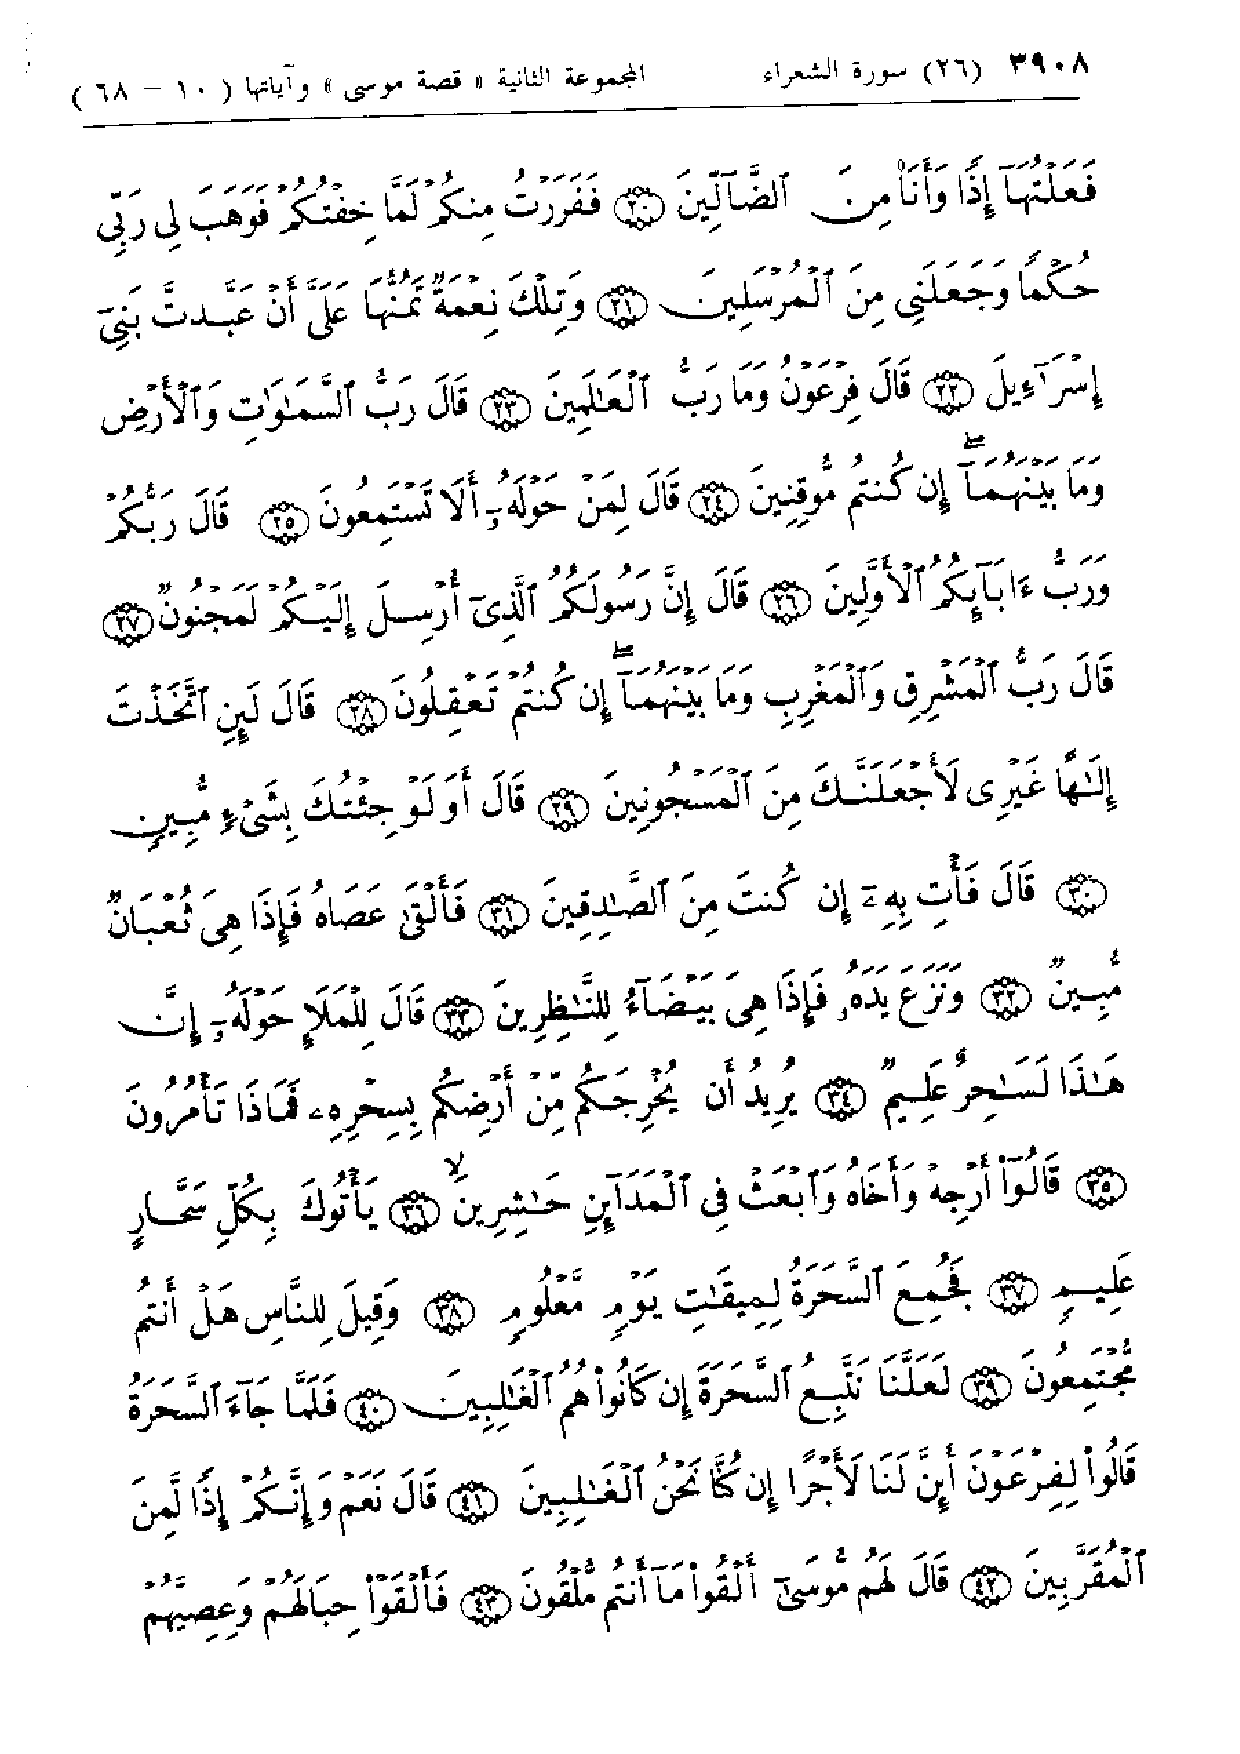 ٣٩٠٨ (٢٦) سورة الشعراء المجموعة الثانية « قصة موسى » وآياتها ( ١٠ – ٦٨ )
فَعَلْتُهَآ إِذًا وَأَنَا۠ مِنَ ٱلضَّآلِّينَ ﴿٢٠﴾ فَفَرَرْتُ مِنكُمْ لَمَّا خِفْتُكُمْ فَوَهَبَ لِى رَبِّى
حُكْمًا وَجَعَلَنِى مِنَ ٱلْمُرْسَلِينَ ﴿٢١﴾ وَتِلْكَ نِعْمَةٌ تَمُنُّهَا عَلَىَّ أَنْ عَبَّدتَّ بَنِىٓ
إِسْرَٰٓءِيلَ ﴿٢٢﴾ قَالَ فِرْعَوْنُ وَمَا رَبُّ ٱلْعَٰلَمِينَ ﴿٢٣﴾ قَالَ رَبُّ ٱلسَّمَٰوَٰتِ وَٱلْأَرْضِ
وَمَا بَيْنَهُمَآ ۖ إِن كُنتُم مُّوقِنِينَ ﴿٢٤﴾ قَالَ لِمَنْ حَوْلَهُۥٓ أَلَا تَسْتَمِعُونَ ﴿٢٥﴾ قَالَ رَبُّكُمْ
وَرَبُّ ءَابَآئِكُمُ ٱلْأَوَّلِينَ ﴿٢٦﴾ قَالَ إِنَّ رَسُولَكُمُ ٱلَّذِىٓ أُرْسِلَ إِلَيْكُمْ لَمَجْنُونٌ ﴿٢٧﴾
قَالَ رَبُّ ٱلْمَشْرِقِ وَٱلْمَغْرِبِ وَمَا بَيْنَهُمَآ ۖ إِن كُنتُمْ تَعْقِلُونَ ﴿٢٨﴾ قَالَ لَئِنِ ٱتَّخَذْتَ
إِلَٰهًا غَيْرِى لَأَجْعَلَنَّكَ مِنَ ٱلْمَسْجُونِينَ ﴿٢٩﴾ قَالَ أَوَلَوْ جِئْتُكَ بِشَىْءٍ مُّبِينٍ
﴿٣٠﴾ قَالَ فَأْتِ بِهِۦٓ إِن كُنتَ مِنَ ٱلصَّٰدِقِينَ ﴿٣١﴾ فَأَلْقَىٰ عَصَاهُ فَإِذَا هِىَ ثُعْبَانٌ
مُّبِينٌ ﴿٣٢﴾ وَنَزَعَ يَدَهُۥ فَإِذَا هِىَ بَيْضَآءُ لِلنَّٰظِرِينَ ﴿٣٣﴾ قَالَ لِلْمَلَإِ حَوْلَهُۥٓ إِنَّ
هَٰذَا لَسَٰحِرٌ عَلِيمٌ ﴿٣٤﴾ يُرِيدُ أَن يُخْرِجَكُم مِّنْ أَرْضِكُم بِسِحْرِهِۦ فَمَاذَا تَأْمُرُونَ
﴿٣٥﴾ قَالُوٓا۟ أَرْجِهْ وَأَخَاهُ وَٱبْعَثْ فِى ٱلْمَدَآئِنِ حَٰشِرِينَ ۙ ﴿٣٦﴾ يَأْتُوكَ بِكُلِّ سَحَّارٍ
عَلِيمٍ ﴿٣٧﴾ فَجُمِعَ ٱلسَّحَرَةُ لِمِيقَٰتِ يَوْمٍ مَّعْلُومٍ ﴿٣٨﴾ وَقِيلَ لِلنَّاسِ هَلْ أَنتُم
مُّجْتَمِعُونَ ﴿٣٩﴾ لَعَلَّنَا نَتَّبِعُ ٱلسَّحَرَةَ إِن كَانُوا۟ هُمُ ٱلْغَٰلِبِينَ ﴿٤٠﴾ فَلَمَّا جَآءَ ٱلسَّحَرَةُ
قَالُوا۟ لِفِرْعَوْنَ أَئِنَّ لَنَا لَأَجْرًا إِن كُنَّا نَحْنُ ٱلْغَٰلِبِينَ ﴿٤١﴾ قَالَ نَعَمْ وَإِنَّكُمْ إِذًا لَّمِنَ
ٱلْمُقَرَّبِينَ ﴿٤٢﴾ قَالَ لَهُم مُّوسَىٰٓ أَلْقُوا۟ مَآ أَنتُم مُّلْقُونَ ﴿٤٣﴾ فَأَلْقَوْا۟ حِبَالَهُمْ وَعِصِيَّهُمْ